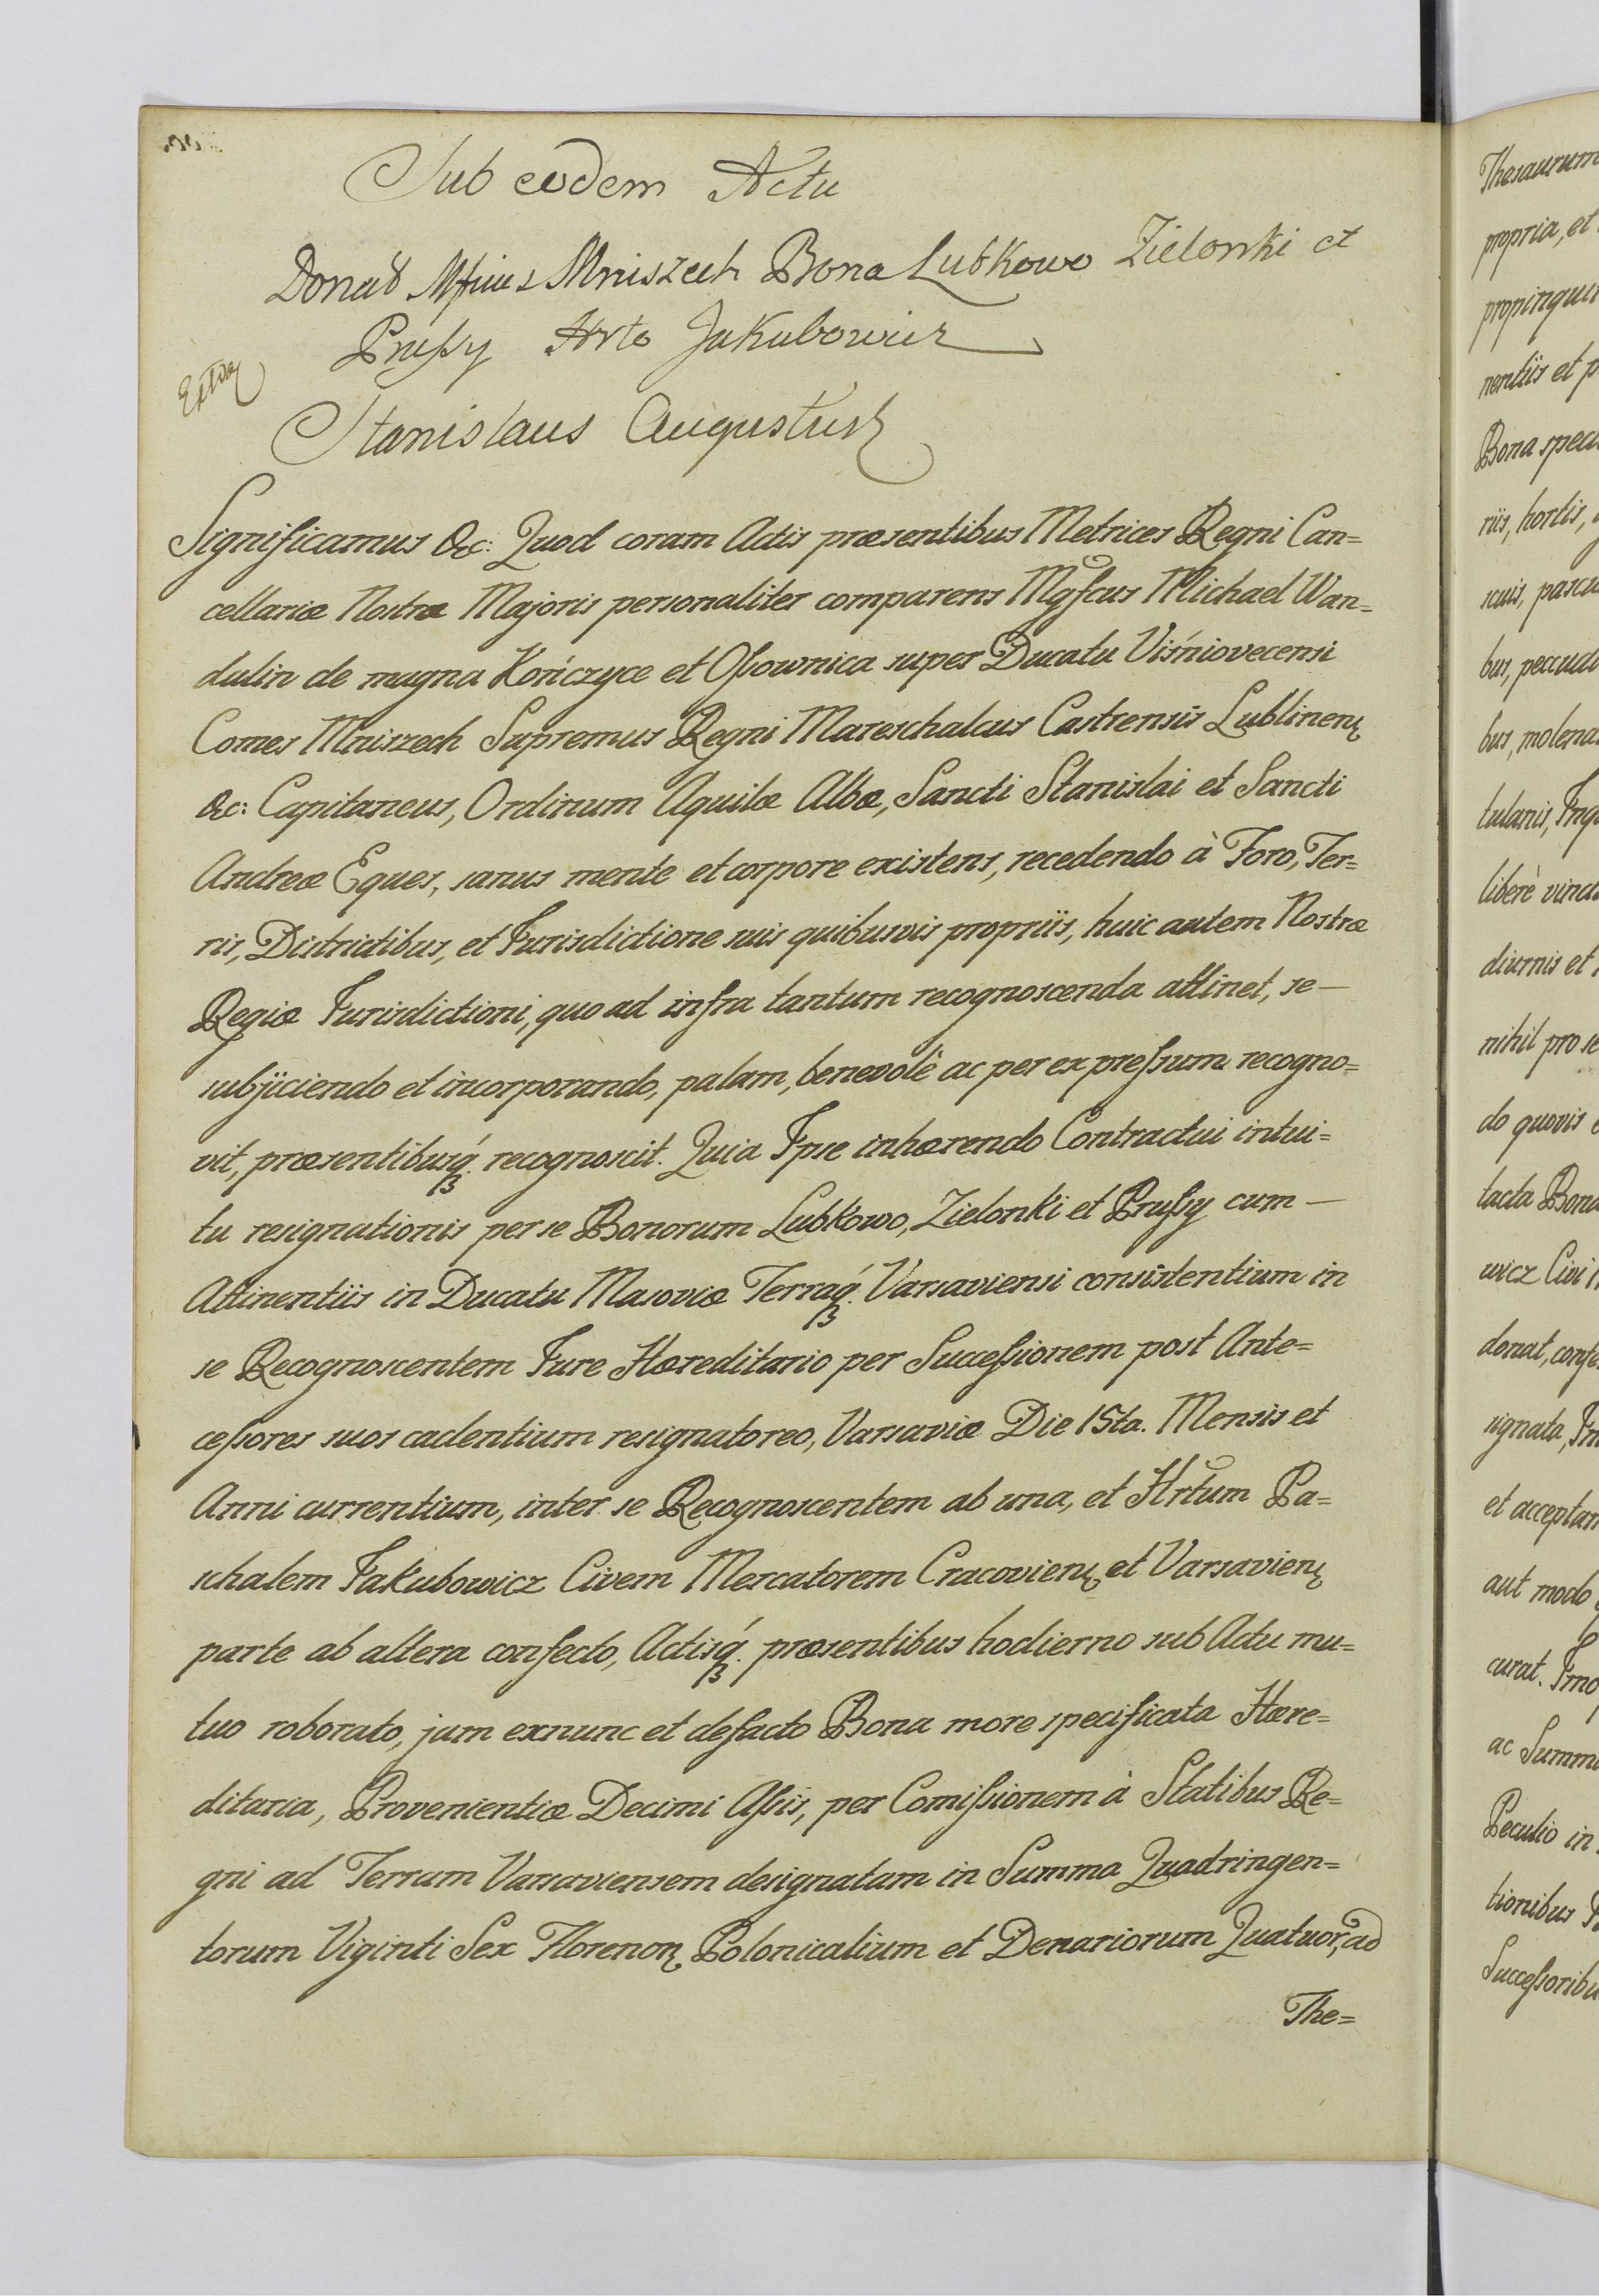 Sub eodem Actu
Donat Mficus Mniszech Bona Lubkowo Zielonki et
Prussy Hrto Jakubowicz
Extda
Stanislaus Augustus
Significamus &c: Quod coram Actis præsentibus Metrices Regni Can=
cellariæ Nostræ Majoris personaliter comparens Mgfcus Michael Wan=
dalin de magna Kończyce et Ossownica super Ducatu Viśniovecensi
Comes Mniszech Supremus Regni Mareschalcus Castrensis Lublinenꝫ
&c: Capitaneus, Ordinum Aquilæ Albæ, Sancti Stanislai et Sancti
Andreæ Eques, sanus mente et corpore existens, recedendo à Foro, Ter=
ris, Districtibus, et Jurisdictione suis quibusvis propriis, huic autem Nostræ
Regiæ Jurisdictioni, quo ad infra tantum recognoscenda attinet, se—
subjiciendo et incorporando, palam, benevolè ac per expressum recogno=
vit, præsentibusq́ꝫ. recognoscit. Quia Ipse inhærendo Contractui intui=
tu resignationis per se Bonorum Lubkowo, Zielonki et Prussy cum—
Attinentiis in Ducatu Masoviæ Terraq́ꝫ. Varsaviensi consistentium in
se Recognoscentem Jure Hæreditario per Successionem post Ante=
cessores suos cadentium resignatoreo, Varsaviæ Die 15ta. Mensis et
Anni currentium, inter se Recognoscentem ab una, et Hrtum Pa=
schalem Jakubowicz Civem Mercatorem Cracovienꝫ et Varsavienꝫ
parte ab altera confecto, Actisq́ꝫ. præsentibus hodierno sub Actu mu=
tuo roborato, jam exnunc et defacto Bona more specificata Hære=
ditaria, Provenientiæ Decimi Assis, per Comissionem à Statibus Re=
gni ad Terram Varsaviensem designatam in Summa Quadringen=
torum Viginti Sex Florenorꝫ Polonicalium et Denariorum Quatuor, ad
The=
Thesaurum
propria, et
propinqui
nentiis et p
Bona speci
riis, hortis,
scuis, pascu
bus, pecudi
bus, molena
tulariis, Inq
liberè vind
diurnis et
nihil pro se
do quovis
tacta Bona
wicz Civi
donat, confe
signata, In
et acceptan
aut modo
curat. Imo
ac Summ
Peculio in
tionibus
Successoribu